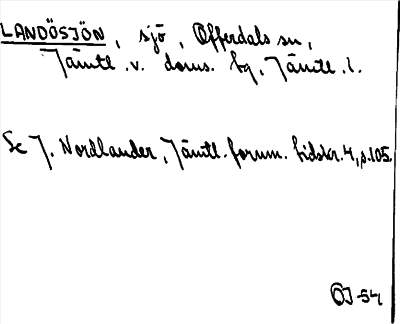 LANDÖSJÖN, sjö, Offerdals sn,
Jämtl. v. doms. hg, Jämtl. l.
Se J. Nordlander, Jämtl. fornm. tidskr. 4, s. 105.
ÖJ-54